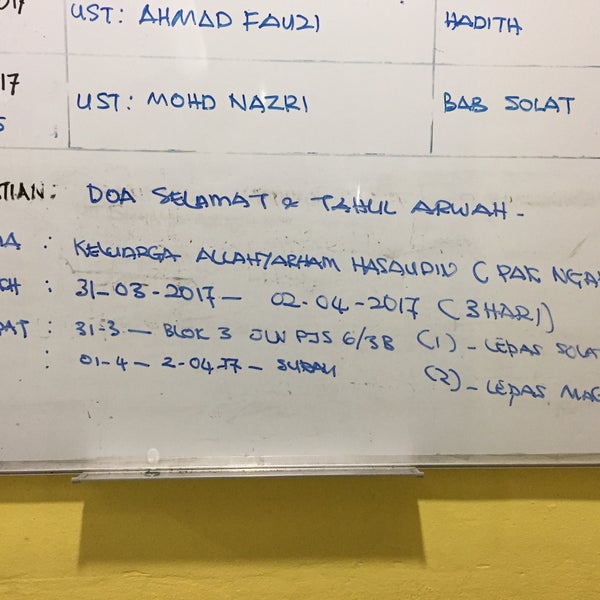 017
UST: AHMAD FAUZI HADITH
17
UST: MOHD NAZRI BAB SOLAT
5
TIAN: DOA SELAMAT & TAHLIL ARWAH -
MA : KELUARGA ALLAHYARHAM HASAUDIN (PAK NGA
KH : 31-03-2017 - 02-04-2017 (3 HARI)
PAT : 31-3 - BLOK 3 JLN PJS 6/3B (1) - LEPAS SOLA
: 01-4 - 2-04-17 - SURAU (2) - LEPAS MAG